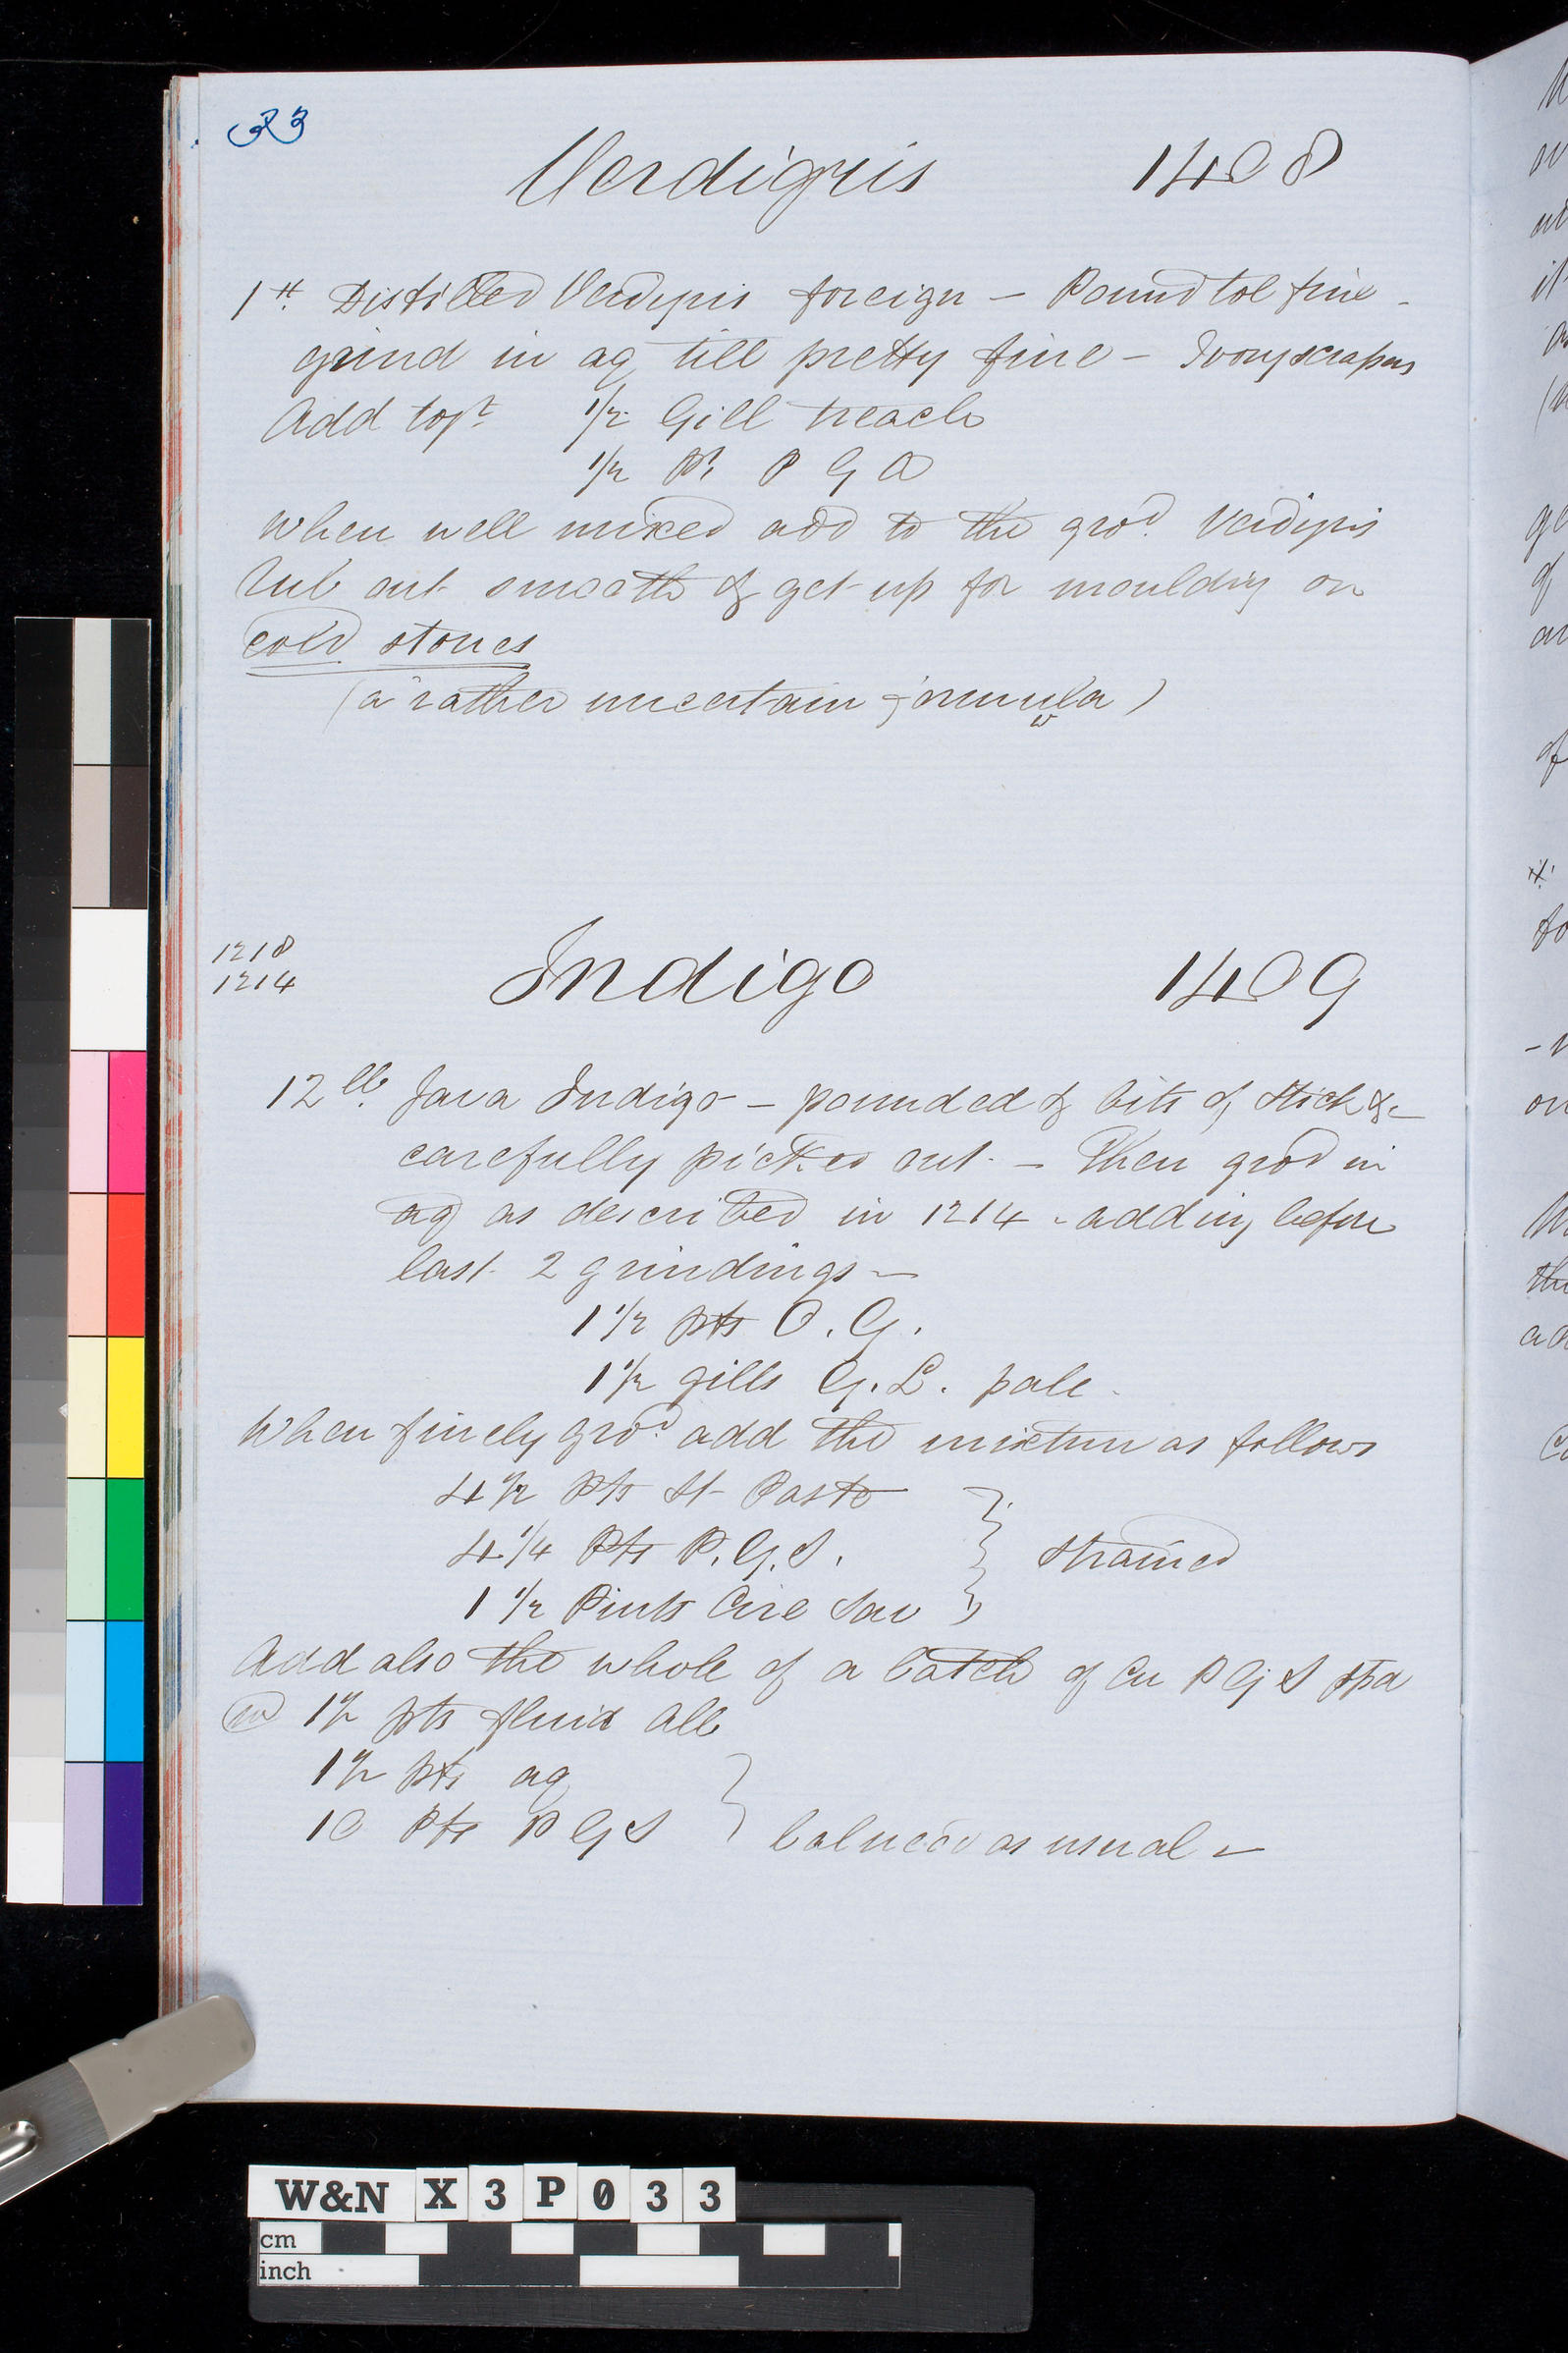 33
Verdigris 1408
1 lb. Distilled Verdigris foreign – Pound tol fine –
grind in aq till pretty fine – Ivory scrapers
Add togr 1/2 Gill treacle
1/2 Pt P G A
When well mixed add to the grod. Verdigris
Rub out smooth & get up for moulding on
cold stones
(a rather uncertain formula)
1218
1214
Indigo 1409
12 lb. Java Indigo – pounded & bits of stick &c
carefully picked out. – Then grod in
aq as described in 1214 – adding before
last 2 grindings –
1 1/2 pts O. G.
1 1/2 gills G. L. pale.
When finely grod. add the mixture as follows
4 1/2 Pts St Paste
4 1/4 Pts P. G. S.
1 1/2 Pints Cire Sav
strained
Add also the whole of a batch of Cu P G S
1 1/2 pts fluid Alb
1 1/2 pts aq
10 Pts P G S
as usual –
W&N X 3 P 0 3 3
cm
inch